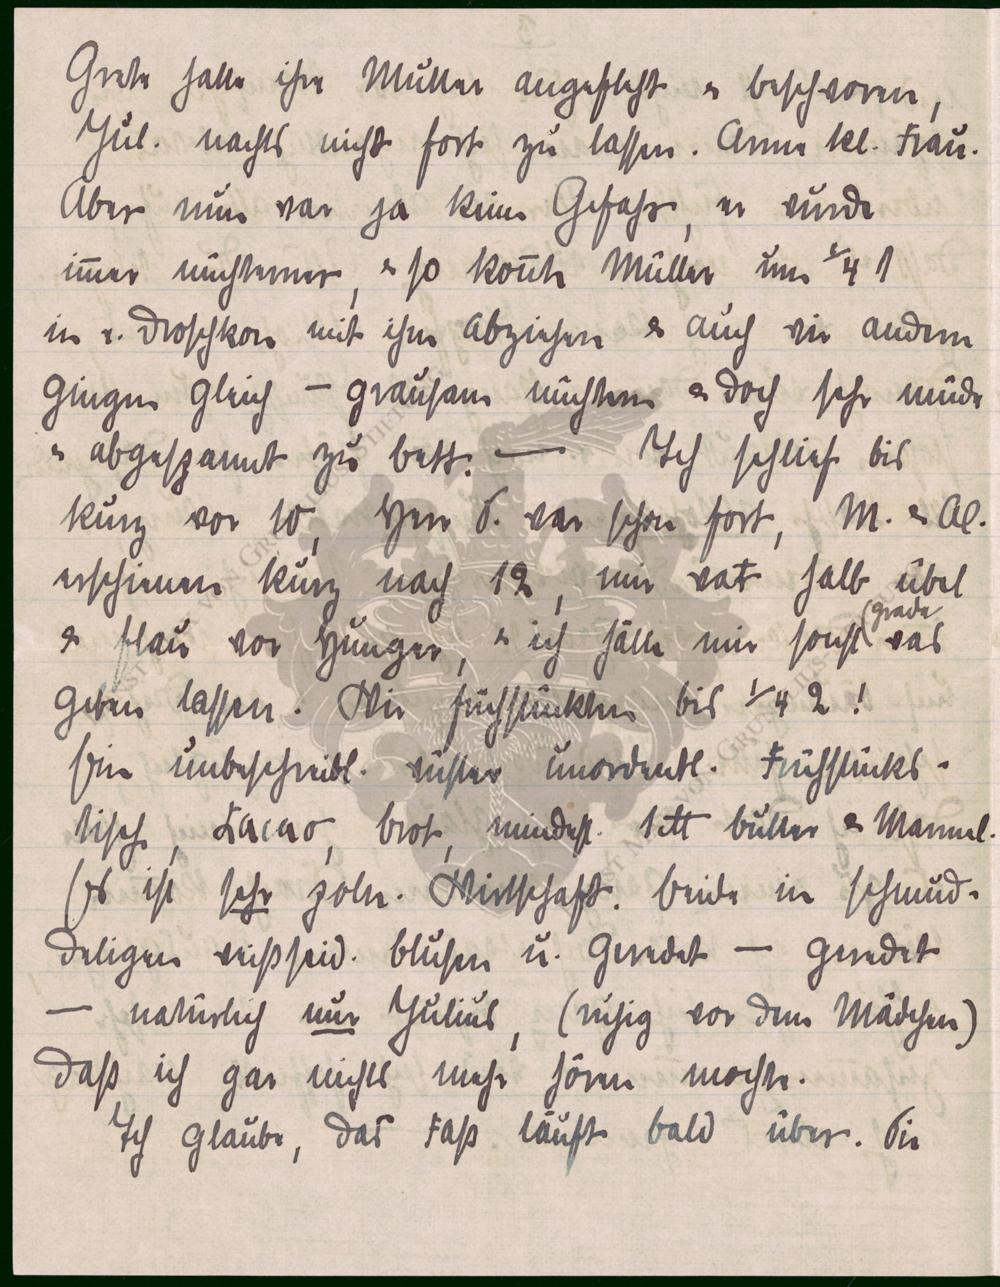 Grete hatte ihre Mutter angefleht & beschworen,
Jul. nachts nicht fort zu lassen. Arme kl. Frau.
Aber nun war ja keine Gefahr, er wurde
im̅er nüchterner, & so kon̅te Müller um 1/4 1
in e. Droschke mit ihm abziehen & auch wir andern
gingen gleich – grausam nüchtern & doch sehr müde
& abgespannt zu bett. — Ich schlief bis
kurz vor 10, Herr S. war schon fort, M. & Al.
erschienen kurz nach 12, mir war halb übel
& flau vor Hunger, & ich hätte mir sonst (grade
was
geben lassen. Wir frühstückten bis 1/4 2!
Ein unbeschreibl. wüster unordentl. Frühstücks-
tisch, Kacao, brot, mindest. butter & Marmel.
Es ist sehr poln. Wirtschaft. beide in schmud-
deligen weißseid. blusen u. geredet — geredet
— natürlich nur Julius, (ruhig vor dem Mädchen)
daß ich gar nichts mehr hören mochte.
Ich glaube, das Faß läuft bald über. Sie